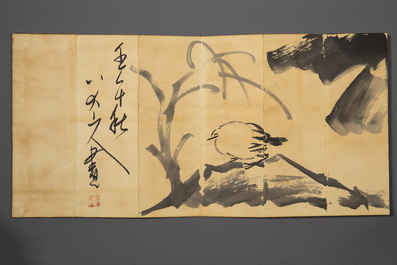 壬午秋
八大山人畫